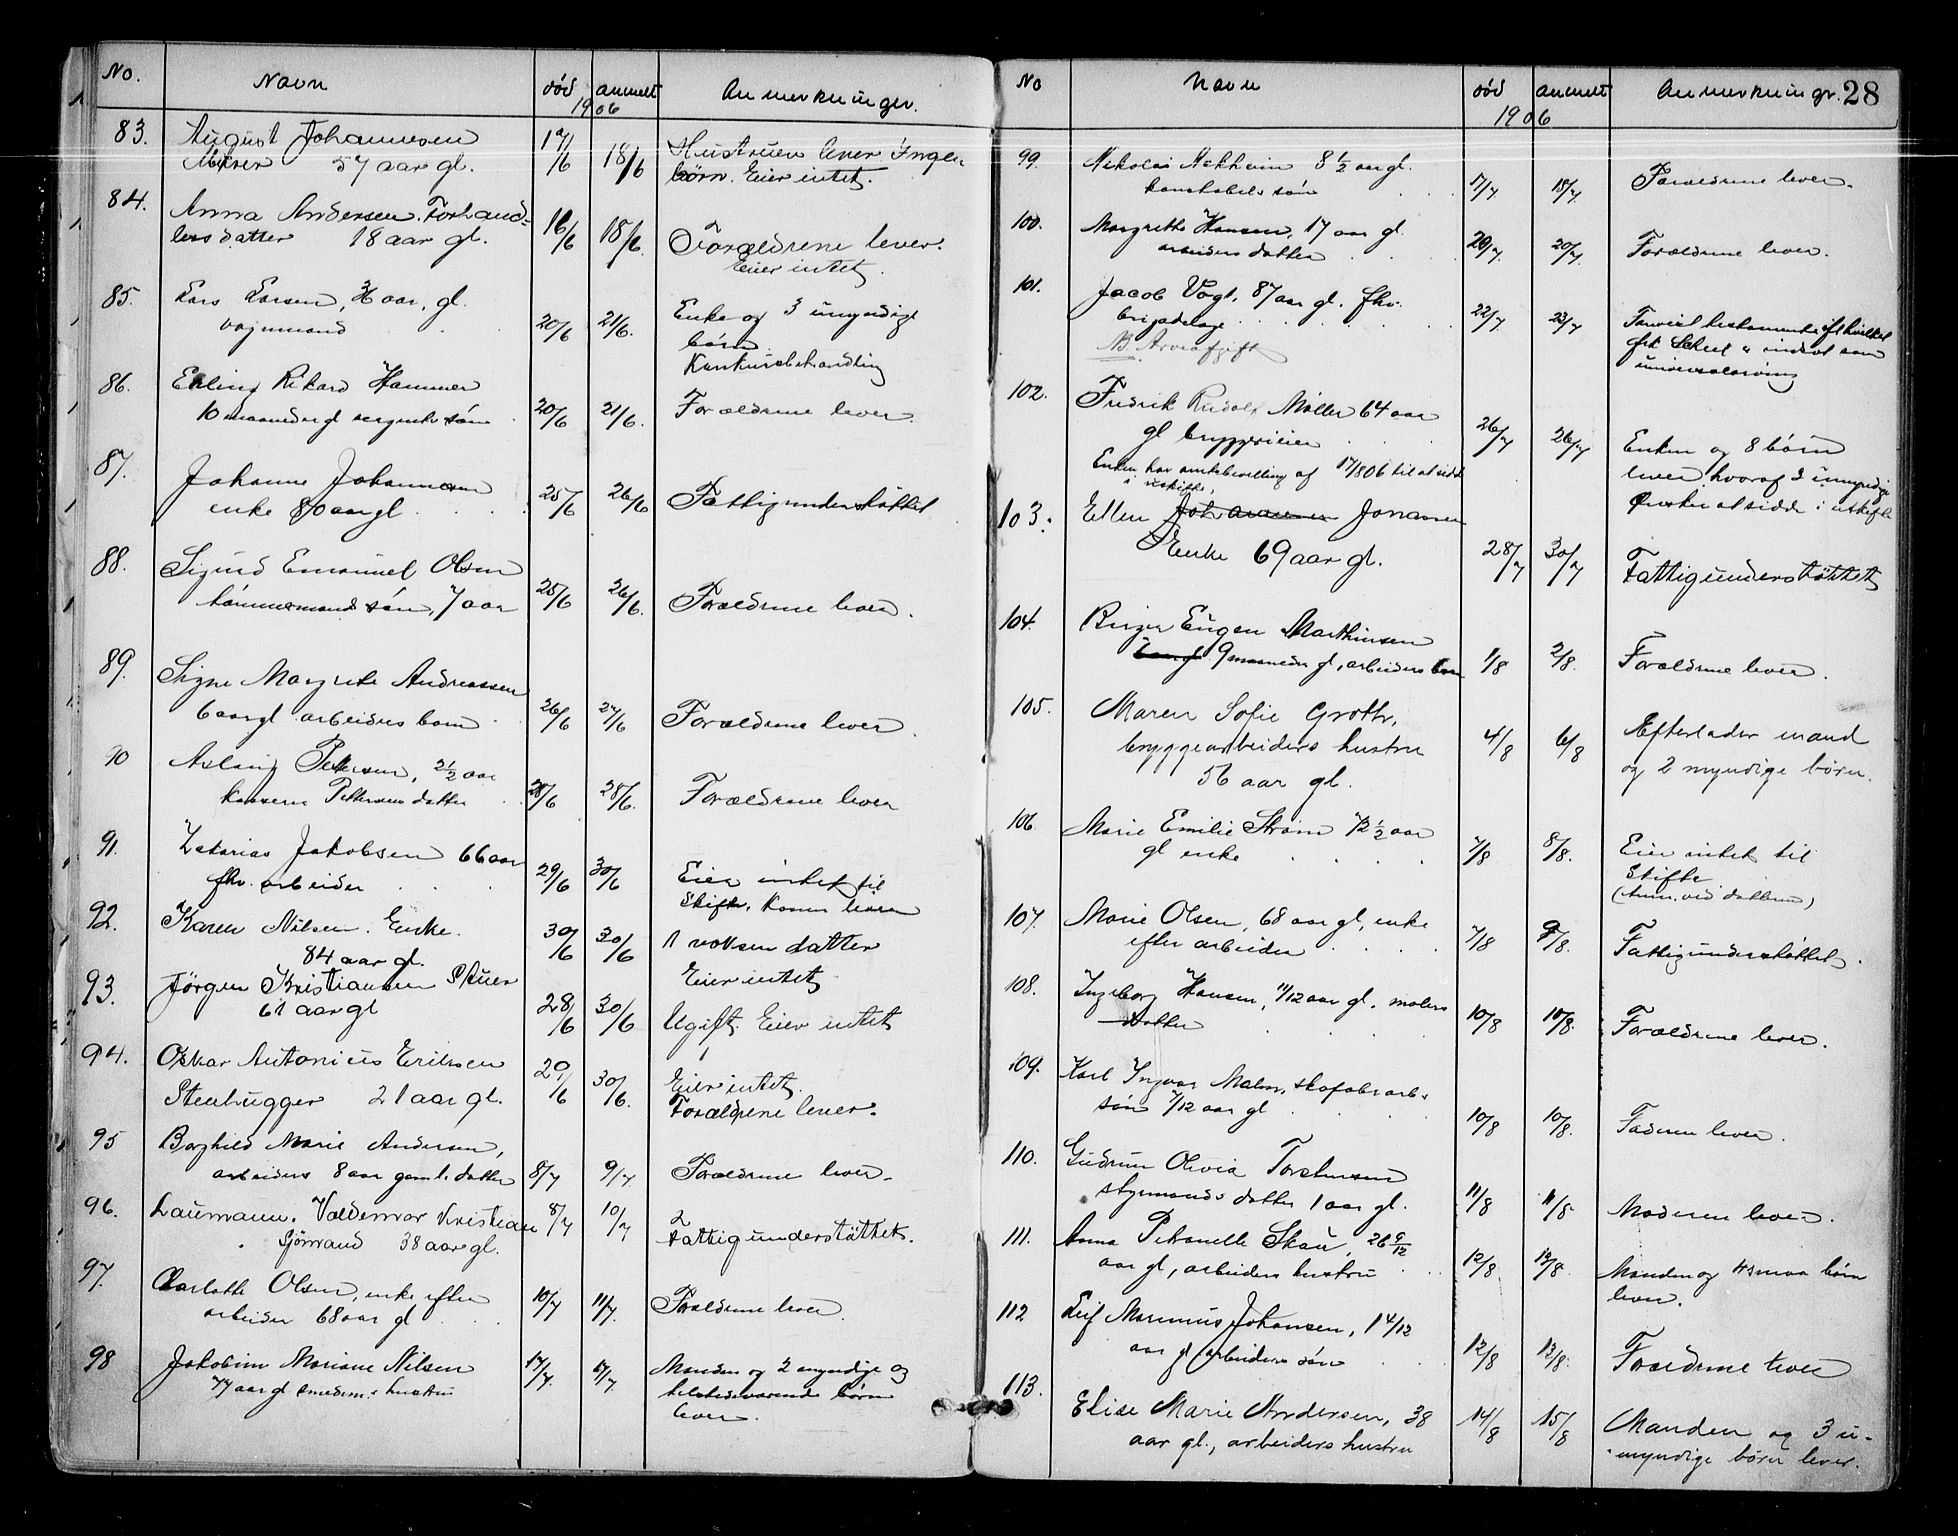 No. Navn död anmelt Anmerkninger.
1906
83. August Johannesen 17/6 18/6 Hustruen lever Ingen
Murer 57 aar gl. börn. Eier intet.
84. Anna Andersen. Forhand-
lers datter 18 aar gl. 16/6 18/6 Forældrene lever.
Eier intet.
85. Lars Larsen, 36 aar, gl.
vognmand 20/6 21/6. Enke og 3 umyndige
börn
Konkursbehandling
86. Erling Rikard Hammer
10 maaneder gl sergents sön 20/6 21/6. Forældrene lever.
87. Johanne Johannesen
enke 80 aar gl 25/6 26/6 Fattigunderstöttet
88. Sigurd Emanuel Olsen
tömmermands sön, 7 aar 25/6 26/6. Forældrene lever.
89. Signe Margrete Andreassen
6 aar gl arbeiders barn 26/6 27/6 Forældrene lever.
90 Aslaug Pettersen, 2 1/2 aar
Pettersens datter 28/6 28/6. Forældrene lever
91. Zakarias Jakobsen 66 aar
fhv. arbeider 29/6 30/6 Eier intet til
Skifte. Konen lever
92. Karen Nilsen. Enke.
84 aar gl. 30/6 30/6 1 voksen datter
Eier intet
93. Jörgen Kristiansen Skuer
61 aar gl 28/6 30/6 Ugift. Eier intet
94. Oskar Antonius Eriksen
Stenhugger 21 aar gl. 29/6 30/6. Eier intet.
Forældrene lever.
95 Borghild Marie Andersen,
arbeiders 8 aar gaml. datter 8/7 9/7. Forældrene lever.
96. Laumann. Valdemar Kristian 8/7 10/7
Sjömand 38 aar gl. Fattigunderstöttet.
97. Charlotte Olsen, enke efter
arbeider 68 aar gl 10/7 11/7. Forældrene lever.
98 Jakobine Mariane Nilsen
77 aar gl smedm.s hustru 17/7. 17/7 Manden og 2 myndige og
tilstedeværende börn
lever.
No Navn död anmelt Anmerkninger. 28
1906
99. Nikolai Nekheim 8 1/2 aar gl.
konstabels sön 17/7 18/7 Forældrene lever.
100. Margrethe Hansen, 17 aar gl.
arbeiders datter 20/7 20/7. Forældrene lever.
101. Jacob Vogt, 87 aar gl. fhv.
brigadelæge 22/7 23/7 testamente ifl hvilket
frk Scheel er indsat som
universalarving
NB. Arveafgift
102. Fredrik Rudolf Möller 64 aar
gl bryggerieier 26/7 26/7 Enken og 8 börn
lever, hvoraf 3 umyndige
Önsker at sidde i uskifte
Enken har amtsbevilling af 17/8 06 til at sidde
i uskifte.
103. Ellen Johannesen Jonassen
Enke 69 aar gl. 28/7 30/7 Fattigunderstöttet
104. Birger Eugen Marthinsen
9 maaneder gl, arbeiders barn 1/8 2/8. Forældrene lever.
105. Maren Sofie Groth,
bryggearbeiders hustru 4/8 6/8 Efterlader mand
og 2 myndige börn.
56 aar gl.
106. Marie Emilie Ström 72 1/2 aar
gl enke 7/8 8/8. Eier intet til
Skifte
(Anm. ved datteren)
107. Marie Olsen, 68 aar gl, enke
efter arbeider 7/8 9/8. Fattigunderstöttet.
108. Ingeborg Hansen, 11/12 aar gl. malers
datter 10/8 10/8. Forældrene lever.
109. Karl Ingvar Malm, skofabr arb.s
sön 7/12 aar gl 10/8 10/8. Faderen lever.
110. Gudrun Olivia Torstensen
styrmands datter 1 aar gl. 11/8 11/8 Moderen lever.
111. Anna Petronelle Skau, 26 9/12
aar gl, arbeiders hustru 12/8 12/8. Manden og 4 smaa börn
lever.
112 Leif Marinius Johansen, 1 4/12
aar gl arbeiders sön 12/8 13/8. Forældrene lever
113. Elise Marie Andersen, 38
aar gl., arbeiders hustru 14/8 15/8 Manden og 3 u-
myndige börn lever.